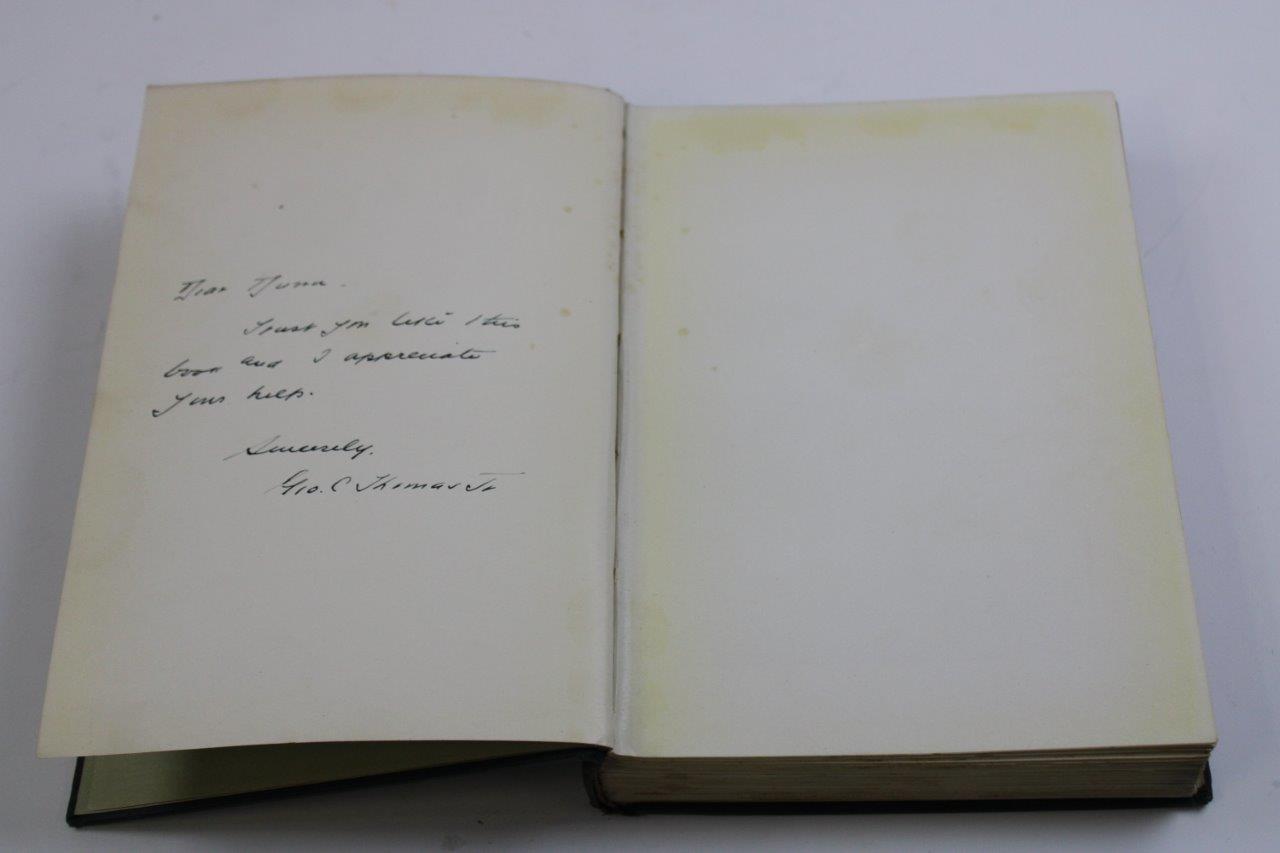 Dear
Trust you like this
book and I appreciate
your help.
Sincerely,
Geo. C. Thomas Jr